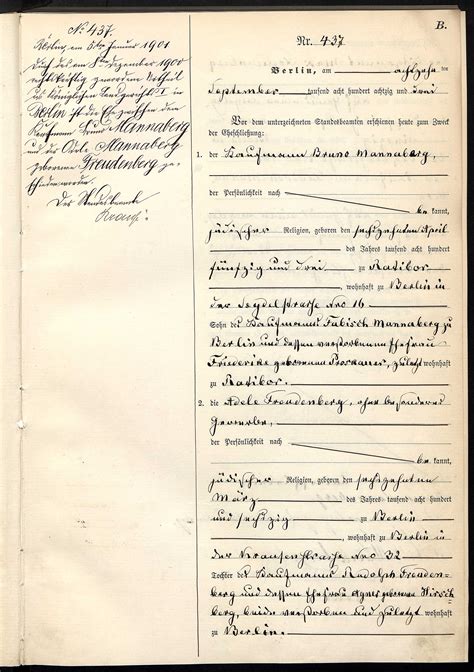 B.
No 437.
Berlin, am 5ten Januar 1901
Durch das am 8. Dezember 1900
rechtskräftig gewordene Urtheil
des Königlichen Landgerichts I in
Berlin ist die Ehe zwischen dem
Kaufmann Bruno Mannaberg
und der Adele Mannaberg
geborene Freudenberg ge-
schieden worden.
Der Standesbeamte
Nr. 437
Berlin, am achtzehn ten
September tausend acht hundert achtzig und drei
Vor dem unterzeichneten Standesbeamten erschienen heute zum Zweck
der Eheschließung:
1. der Kaufmann Bruno Mannaberg,
der Persönlichkeit nach
be kannt,
jüdischer Religion, geboren den sechszehnten April
des Jahres tausend acht hundert
fünfzig und drei zu Ratibor
, wohnhaft zu Berlin in
der Seydelstrasse Nro 16
Sohn des Kaufmanns Fabisch Mannaberg zu
Berlin und dessen verstorbenen Ehefrau
Friederike geborenen Proskauer, zuletzt wohnhaft
zu Ratibor.
2. die Adele Freudenberg, ohne besonderes
Gewerbe,
der Persönlichkeit nach
be kannt,
jüdischer Religion, geboren den sechszehnten
März des Jahres tausend acht hundert
und sechszig zu Berlin
, wohnhaft zu Berlin in
der Krausenstrasse Nro 32
Tochter des Kaufmanns Rudolph Freuden-
berg und dessen Ehefrau Agnes geborenen Hirsch-
berg, beide verstorben und zuletzt wohnhaft
zu Berlin.